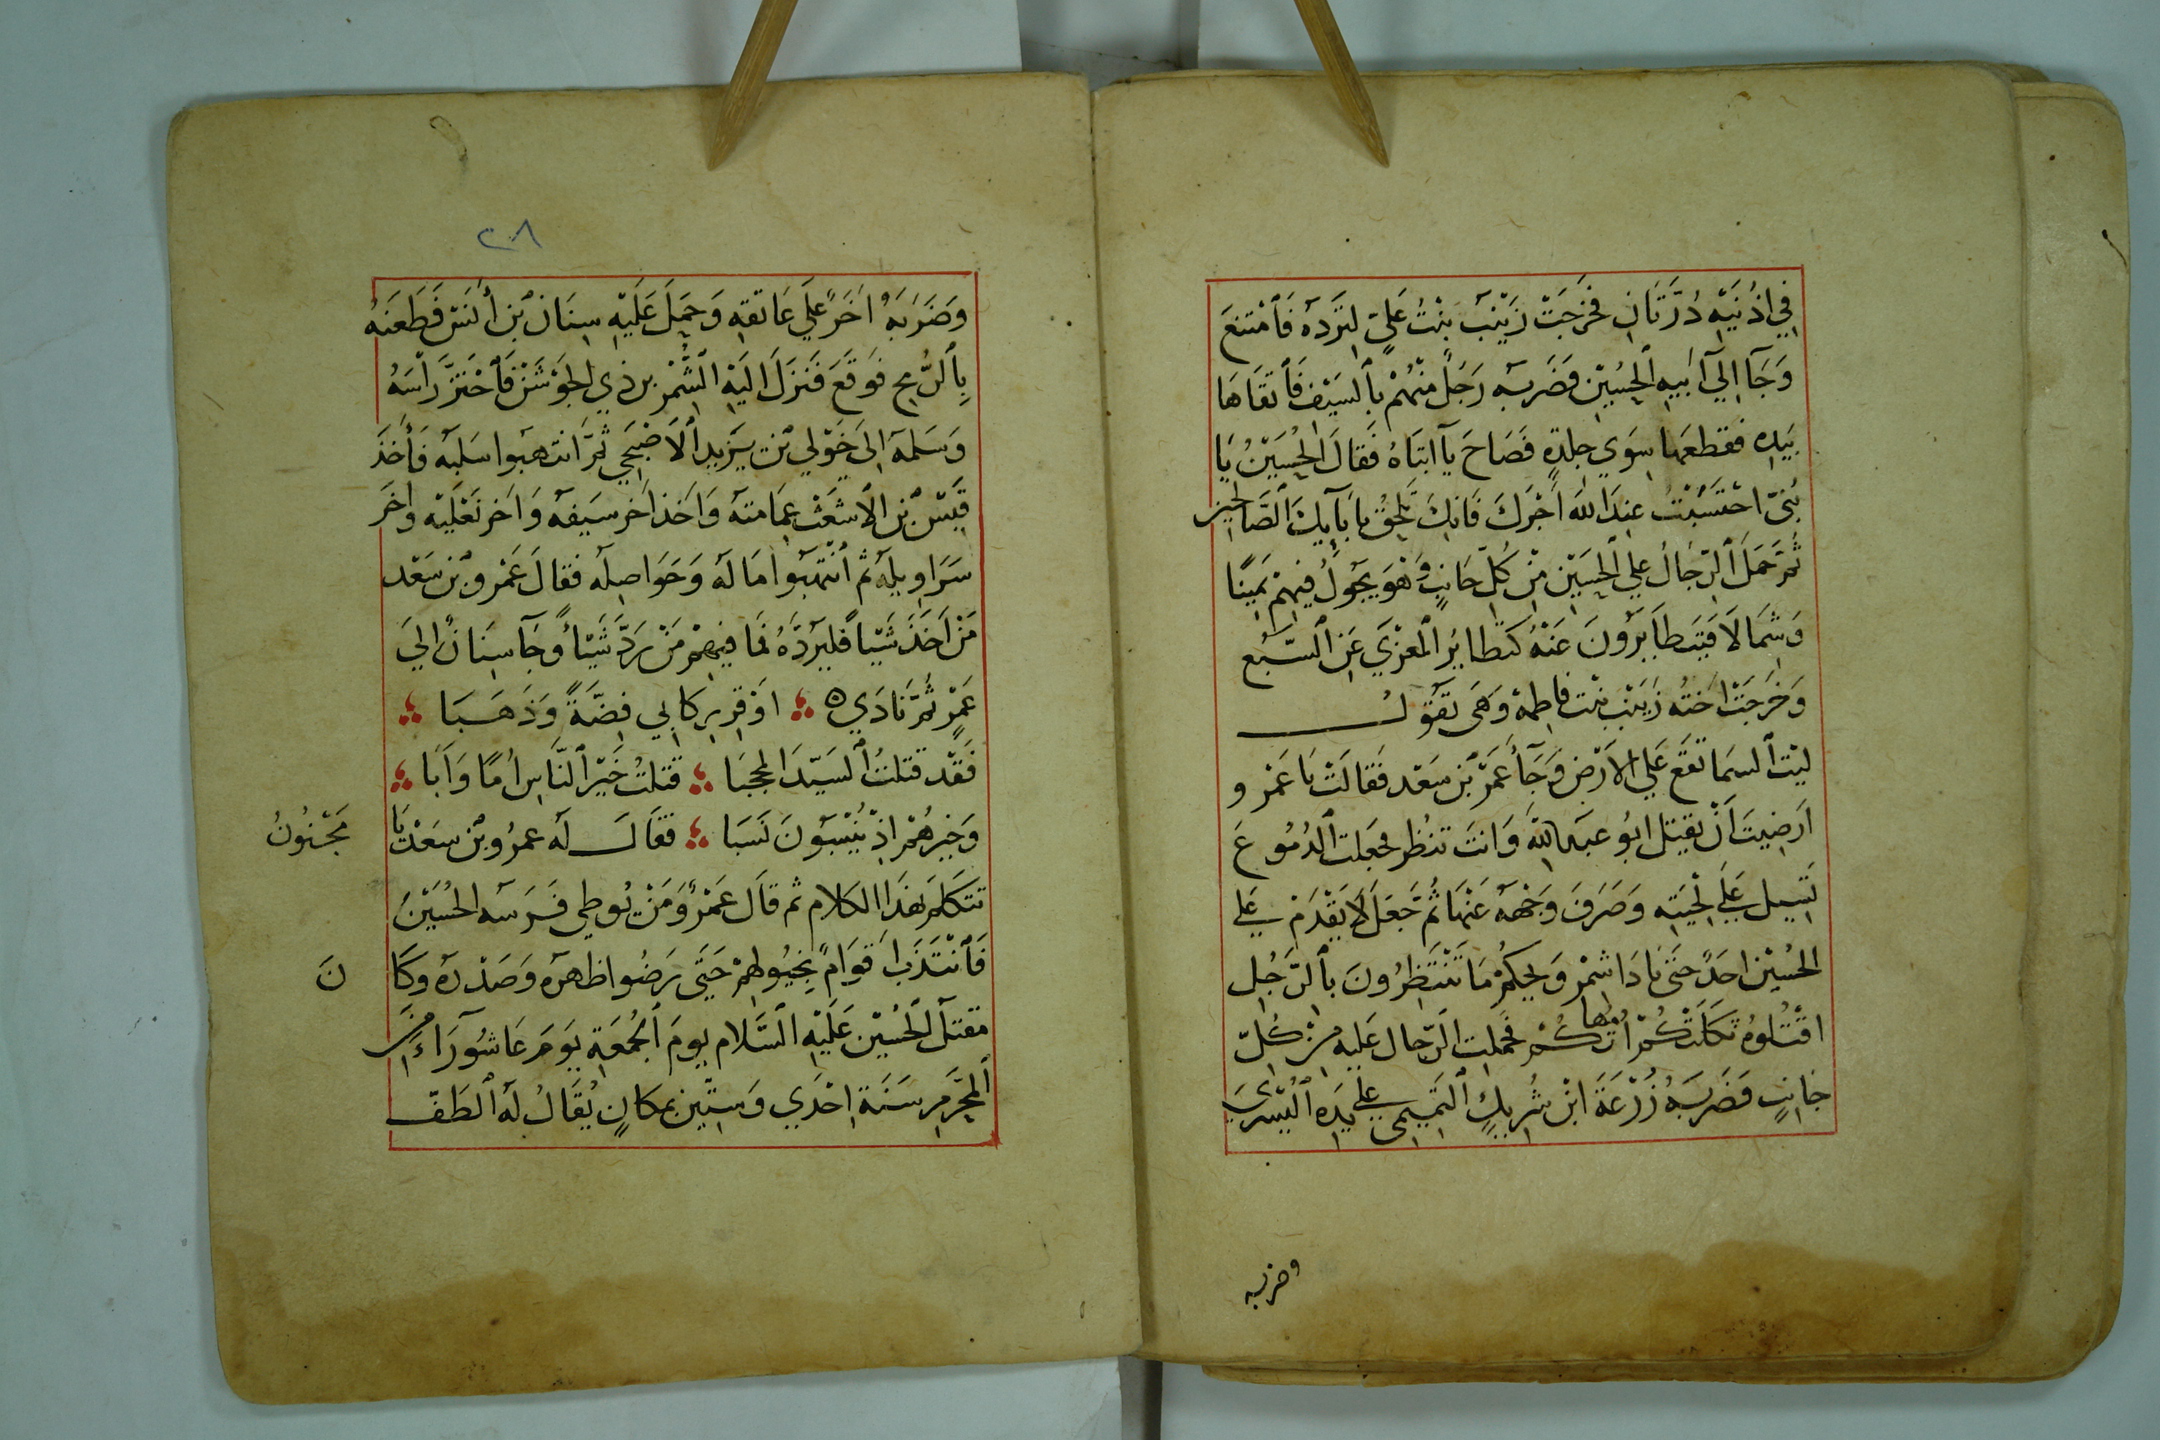 في اذُنَيْهِ دُرَّتَانِ فخرَجَتْ زَيْنَبَ بِنْتُ عَلىّ لتردهُ فَامْتنعَ
وَجَآ اِلَي اَبيهِ الحُسَيْن فضَربهُ رَجُلٌ منْهُمْ بالسَيْف فَاتقَاهَا
بيَدهِ فقطعَها سِوَي جلدةٍ فَصَاحَ يَآ ابتَاهُ فَقالَ الحُسَيْنُ يَا
بُنيّ احْتَسَبْتُ عِندَ اللّه اَجْرَكَ فَانكَ تَلحَقُ بابَآيكَ الصَّالحين
ثُمَّ حَمَلَ الرّجَالُ عَلي الحسَيْن مِنْ كُلّ جَانبٍ وَهْوَ يَجُولُ فيهِمْ يَمينًا
وَشمَالًا فَيَتَطايَرُونَ عَنْهُ كَتَطايُر المعْزَي عَن السَّبُع
وَخَرَجَتْ اختهُ زَيْنَبْ بنْت فاطِمهْ وَهَى تَقُولُ
ليْتَ السمَا تَقَعْ عَلي الاَرْض وَجَآ عُمَرْ بْن سَعْد فَقالَتْ يَا عَمْرو
اَرَضِيتَ اَنْ يقتل ابُو عبد اللّه وَانتَ تنظُر فجَعَلت الدُمُوعَ
تَسِيل عَلَي لحْيَتهِ وَصَرَفَ وَجْههُ عَنْهَا ثُمّ جَعَلَ لَا يَقْدَمْ عَلي
الحُسَيْن احَدٌ حتَى نَادَا شِمْر وَيحكُمْ مَا تَنْتَظِرُونَ بالرّجُل
اقْتُلوهُ ثكَلَتْكُمْ اُمّهاتكُمْ فحَملت الرّجال عَليه مِنْ كُلّ
جَانبٍ فضَرَبَهُ زُرْعَةَ ابْن شُريكٍ التَمِيمي عَلي يَدِه اليُسْرَي
وضربه
٢٠٨
وضَرَبَهُ اَخَرٌ عَلَي عَاتقهِ وَحَمَلَ عَلَيْهِ سِنَان بْن أَنَسْ فَطَعَنهُ
بِالرُّمح فوَقَعَ فَنزَلَ اليَهِ الشِّمْر بن ذي الجَوْشَنْ فَاحْتَزَّ رَأسَهُ
وَسَلمهُ الَى خَوْلي بْن يَزيد الاَصْبَحي ثُمّ انتهبَوا سَلبهُ فَأخذَ
قَيْس بْن الاَشعَثْ عِمَامتهُ وَاَخذ اَخر سَيفهُ وَاَخر نَعْلَيْه وَاخَر
سَرَاويلهُ ثم انْتهَبَوا مَا لهُ وَحَوَاصِلهُ فقالَ عَمْرو بْن سَعْد
مَنْ اَخَذَ شَيْئاً فليَردَّهُ فمَا فيهِمْ مَنْ رَدَّ شَيْئاً وَجَآ سِنَانٌ الَي
عَمرٍ ثُمَّ نَادَي ه اوْقر ركَابي فِضَّةً وَذَهَبَا
فَقْد قتلتُ السَيّدَ المحجبَا قتلتُ خَيْر النَّاسِ اُمًا وَاَبَا
وَخيرهُمْ اذْ يُنْسَبُونَ نَسَبَا فقَالَ لهُ عمرُو بْن سَعْد يَا
مَجْنُونُ
تتَكلم بهذَا الكلام ثم قالَ عَمْرٌو مَنْ يُوطي فَرَسَه الحُسَيْنُ
فَانْتَدَبَ اَقوَامٌ بخيُولهِمْ حَتَّى رَضُوا ظَهرهُ وَصَدْرَهُ وكَا
نَ
مقتلُ الحُسَيْن عَلَيْه السَّلَام يومَ الجُمعَةِ يَومَ عَاشُورَاءَ مِنَ
المحَرَّمِ سَنَة اِحْدَي وَسِتّين بمكانٍ يُقَالُ لَهُ الطَفّ